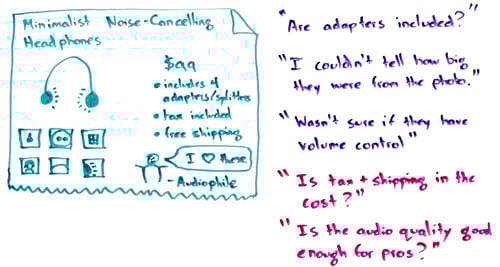 Minimalist Noise-Cancelling
Headphones
$99
• includes 4
adapters/splitters
• tax included
• free shipping
I ♥ these
- Audiophile
"Are adapters included?"
"I couldn't tell how big
they were from the photo."
"Wasn't sure if they have
volume control"
"Is tax + shipping in the
cost?"
"Is the audio quality good
enough for pros?"